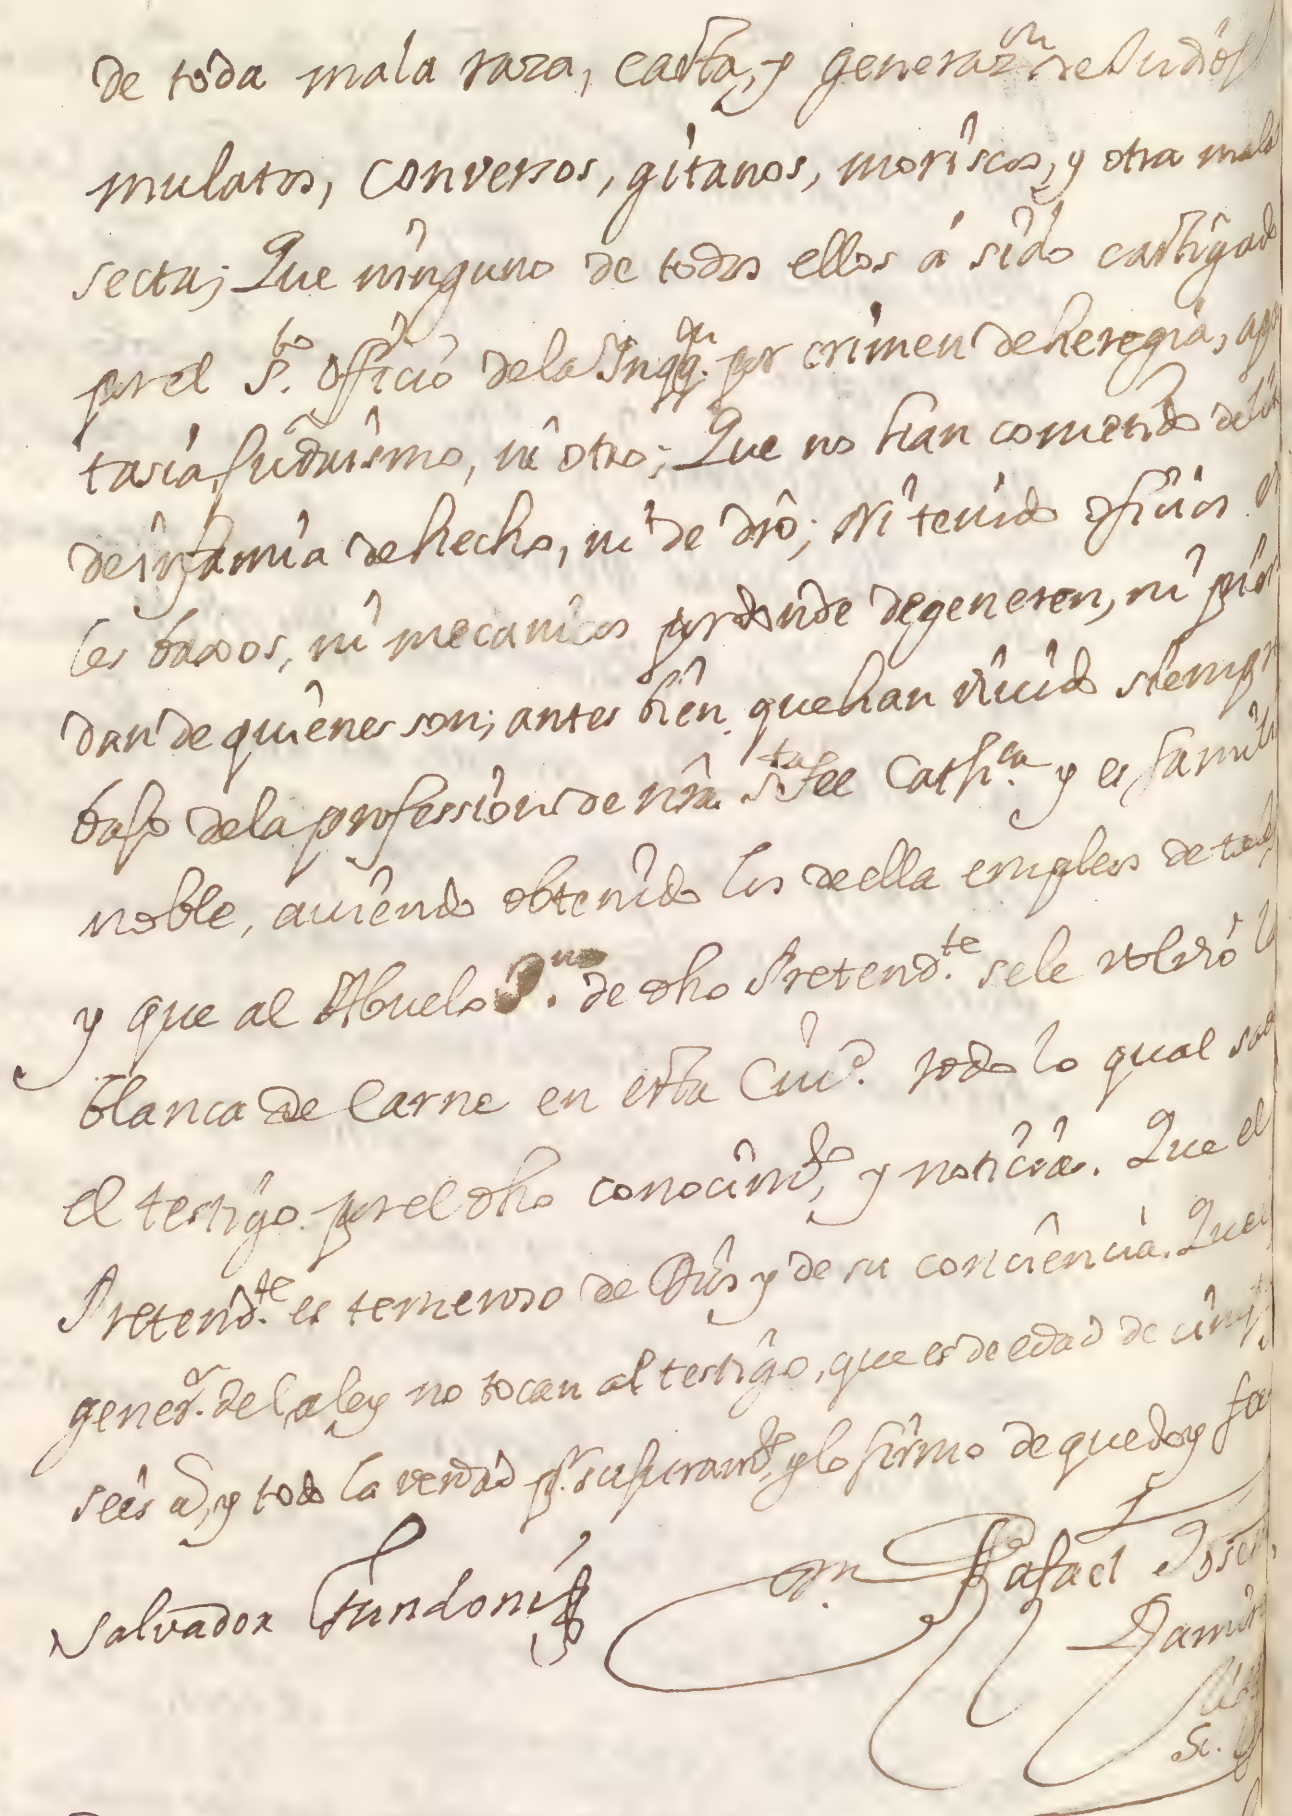 de toda mala raza, casta, y generaz.on de Judios
mulatos, conversos, gitanos, moriscos, y otra mala
secta; Que ninguno de todos ellos á sido castigado
por el S.to Oficio de la Inqq.on por crimen de heregia, apos
tasia, Judaismo, ni otro; Que no han cometido delito
de infamia de hecho, ni de dro; Ni tenido oficios vi
les baxos, ni mecanicos por donde degeneren, ni pier
dan de quienes son; antes bien que han vivido siempre
bajo de la profession de nra S.ta Fee Cath.ca y es familia
noble, aviendo obtenido los de ella empleos de tales,
y que al Abuelo P.no de dho Pretend.te se le volvió la
blanca de Carne en esta Ciu.d todo lo qual save
el testigo por el dho conocim.to, y noticias. Que el
Pretend.te es temeroso de Dios y de su conciencia. Que las
gener.s de la ley no tocan al testigo, que es de edad de cinq.ta
seis a.s, y todo la verdad p.r su juram.to, y lo firmo de que doy fee
Salvador Fundoni
Rafael Joseph
Ramirez